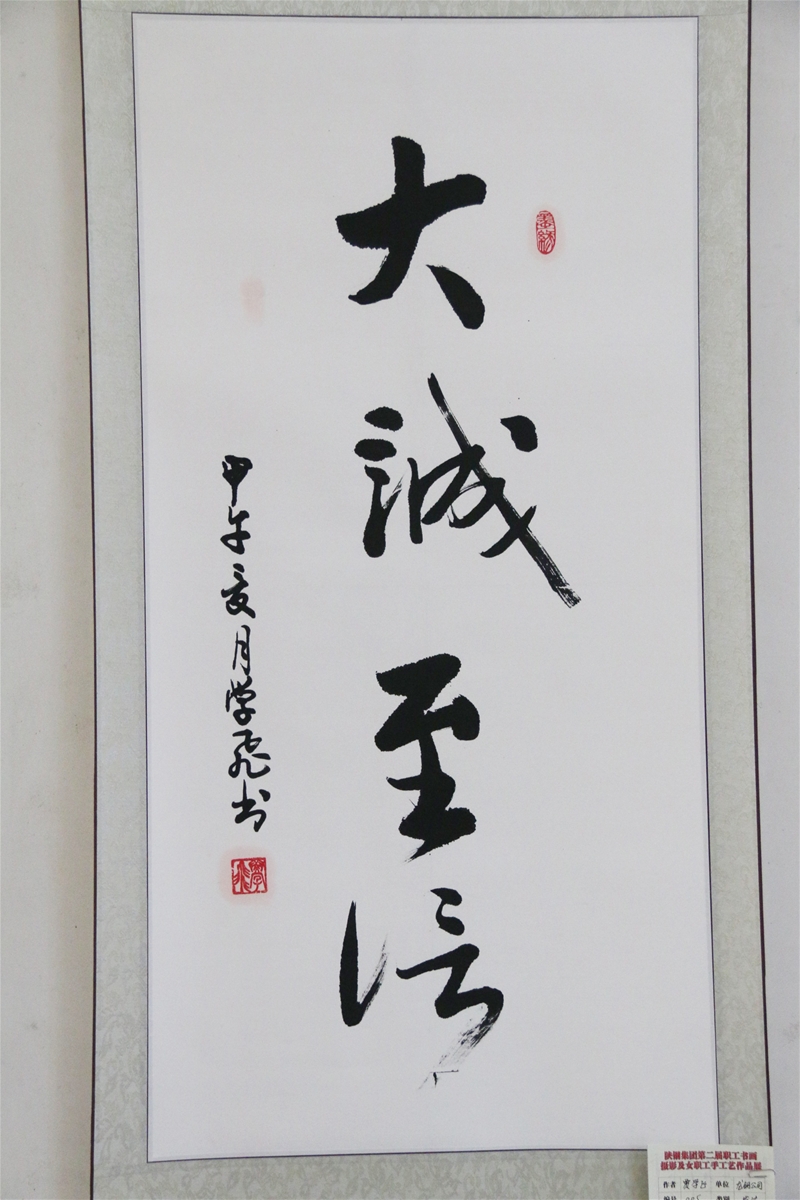 大誠至信
甲午亥月学飛书
陕钢集团第二届职工书画
摄影及女职工手工艺作品展
作者 单位
编号 类别